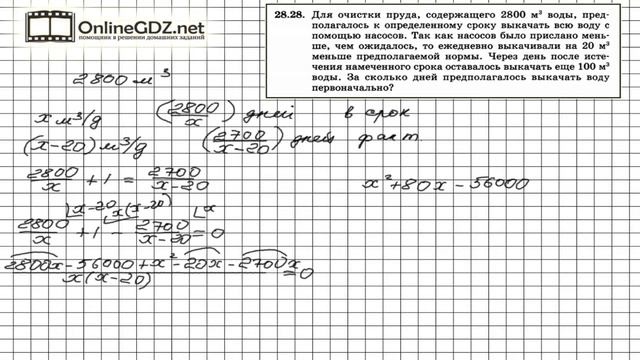 OnlineGDZ.net
помощники в решении домашних заданий
28.28. Для очистки пруда, содержащего 2800 м³ воды, пред-
полагалось к определенному сроку выкачать всю воду с
помощью насосов. Так как насосов было прислано мень-
ше, чем ожидалось, то ежедневно выкачивали на 20 м³
меньше предполагаемой нормы. Через день после исте-
чения намеченного срока оставалось выкачать еще 100 м³
воды. За сколько дней предполагалось выкачать воду
первоначально?
2800 м³
x м³/д (2800/x) дней в срок
(x-20) м³/д (2700/x-20) дней факт
2800/x + 1 = 2700/x-20
x²+80x-56000
2800/x + 1 - 2700/x-20 = 0
x-20 x(x-20) x
2800x-56000+x²-20x-2700x/x(x-20) = 0